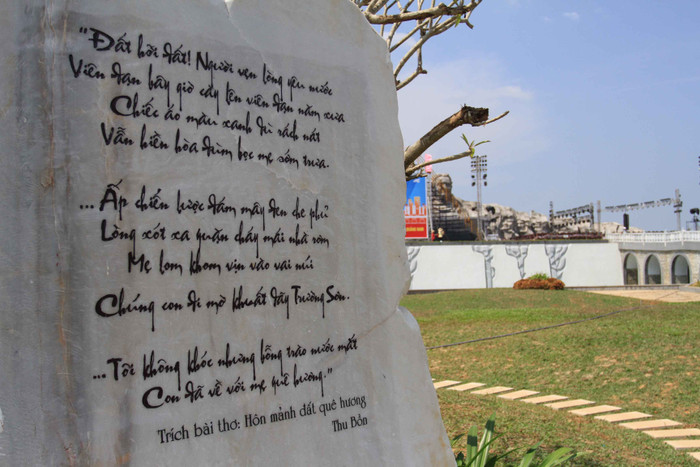 "Đất hỡi đất! Người vẹn lòng yêu nước
Viên đạn bây giờ cấy lên viên đạn năm xưa
Chiếc áo màu xanh dù rách nát
Vẫn hiền hòa đùm bọc mẹ sớm trưa.
...Ấp chiến lược đám mây đen che phủ
Lòng xót xa quặn cháy mái nhà rơm
Mẹ lom khom vịn vào vai núi
Chúng con đi mờ khuất dãy Trường Sơn.
...Tôi không khóc nhưng bỗng trào nước mắt
Con đã về với mẹ quê hương."
Trích bài thơ: Hôn mảnh đất quê hương
Thu Bồn